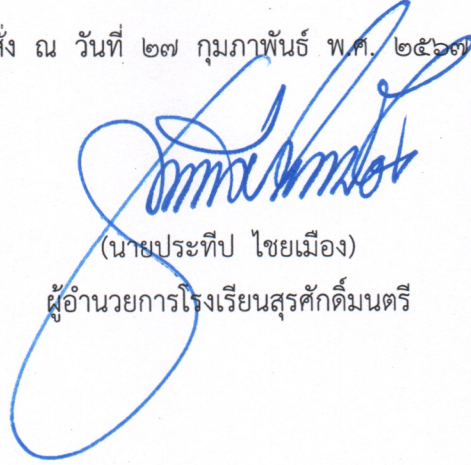 สั่ง ณ วันที่ ๒๗ กุมภาพันธ์ พ.ศ. ๒๕๖๗
(นายประทีป ไชยเมือง)
ผู้อำนวยการโรงเรียนสุรศักดิ์มนตรี